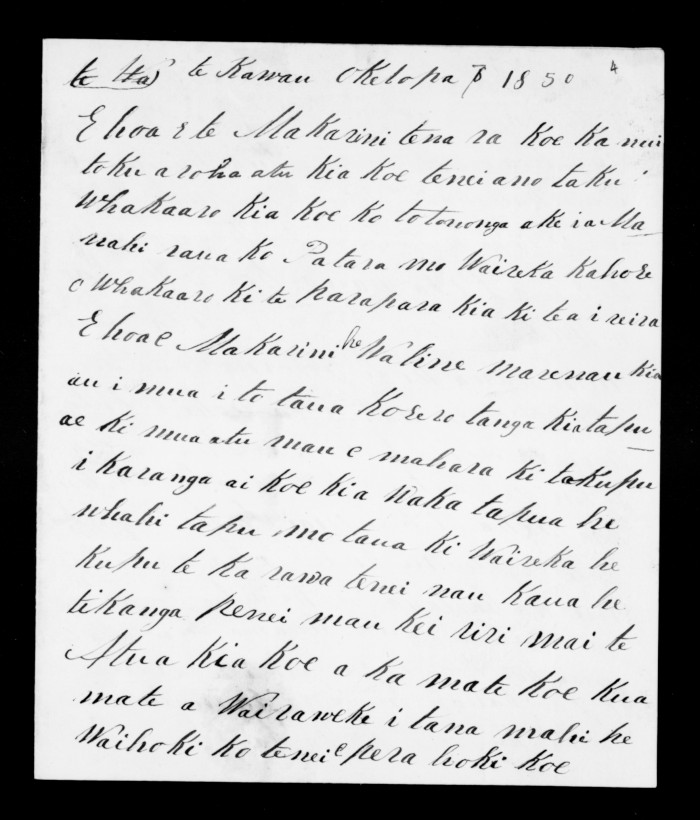 te Kawau Oketopa 8 1850 4
E hoa E te Makarini tena ra Koe Ka nui
toku aroha atu Kia Koe tenei ano taku
Whakaaro Kia Koe Ko to tononga ake ia Ma_
nahi raua Ko Patara mo Waireka Kahore
e Whakaaro Ki te parapara Kia Ki te a i reira
E hoa e Makarini he marenau Kia
au i mua i to taua Korero tanga Kia tapu_
ae Ki mua atu mau e mahara Ki ta Kupu
i Karanga ai Koe Kia Waka tapua he
whahi tapu mo taua Ki Waireka he
Kupu te Ka rawa tenei nau Kaua he
tikanga penei mau Kei riri mai te
Atua Kia Koe a Ka mate Koe Kua
mate a Wairaweke i tana mahi he
Waihoki Ko tenei e pera hoki Koe